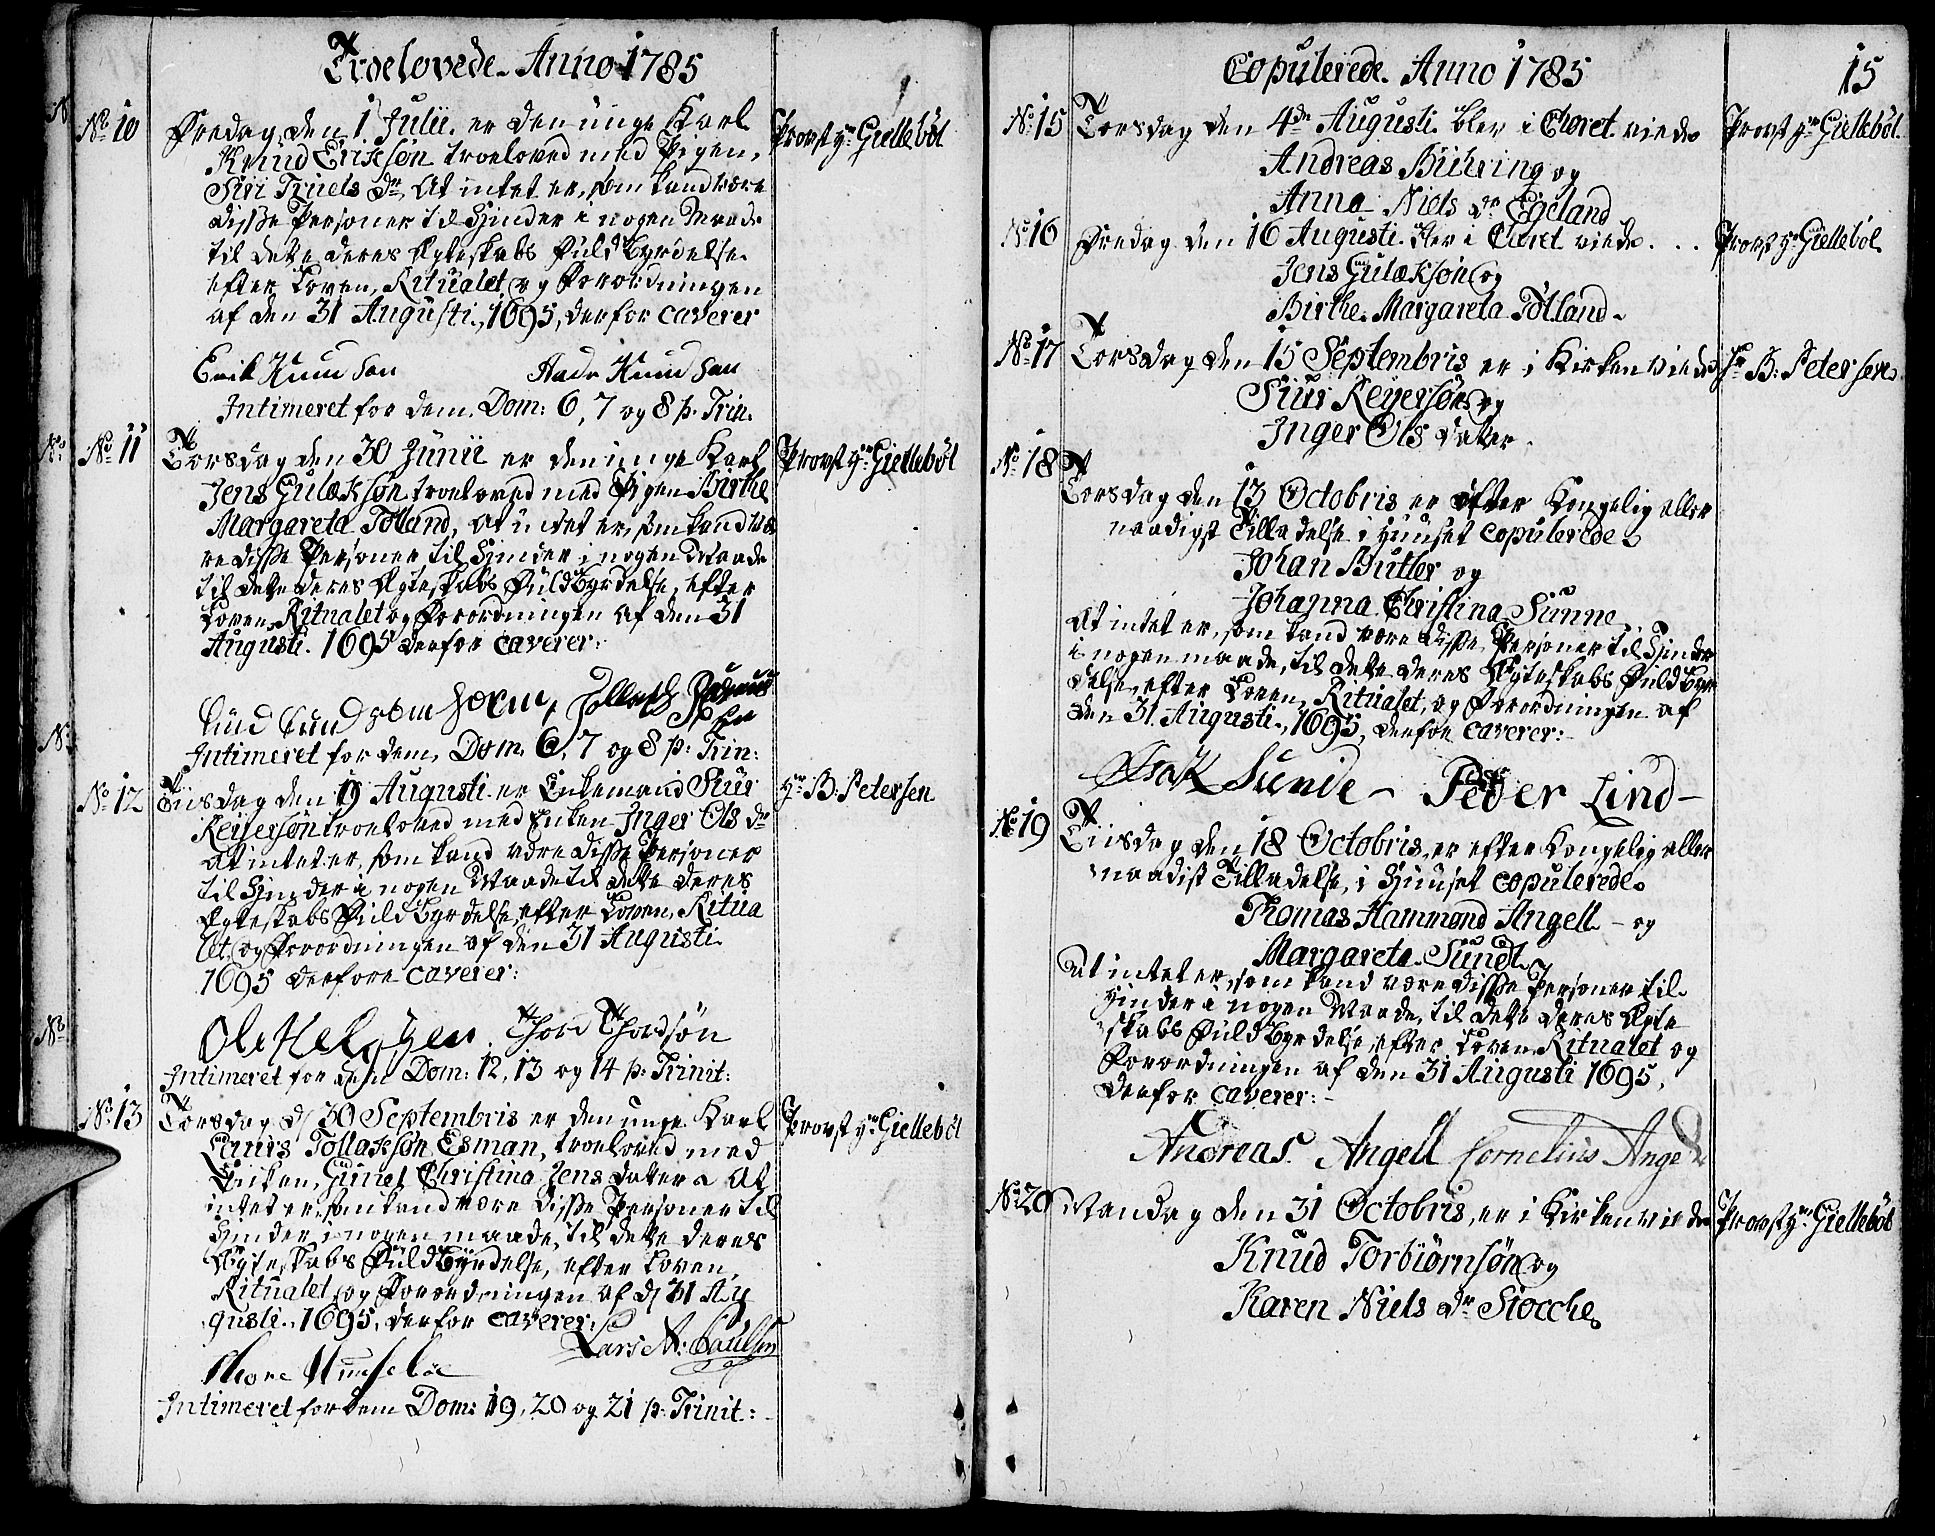 Troelovede Anno 1785
No 10
Fredag den 1 Julii er den unge Karl
Provst Hr Giellebøl
Knud Erikson troeloved med Pigen,
Siri Truels dr, At intet er, som kand være
disse Personer til Hinder i nogen Maade
til dette deres Egteskabs Fuldbyrdelse
efter Loven, Ritualet og Forordningen
af den 31 Augusti, 1695, derfor caverer
Erik Knudsen Aade Knudsen
Intimeret for dem. Dom: 6, 7 og 8 p. Trin.
No 11
Torsdag den 30 Junii er den unge Karl
Provst Hr Giellebøl
Jens Gulækson troeloved med Pigen Birthe
Margareta Totland, At intet er, som kand væ
re disse Personer til Hinder i nogen Maade
til dette deres Egteskabs Fuldbyrdelse, efter
Loven, Ritualet og Forordningen af den 31
Augusti. 1695 derfor caverer:
Intimeret for dem, Dom. 6, 7 og 8 p. Trin:
No 12
Tiisdag den 19 Augusti er Enkemand Siur
Hr B. Petersen
Reiersøn troeloved med Enken Inger Ols dr
At intet er, som kand være disse Personer
til Hinder i nogen Maade til dette deres
Egteskabs Fuldbyrdelse, efter Loven, Ritua
let, og Forordningen af den 31 Augusti.
1695 derfore caverer:
Ole Helgesen. Thord Thordsøn
Intimeret for dem Dom: 12, 13 og 14 p. Trinit:
No 13
Torsdag d 30 Septembris er den unge Karl
Provst Hr Giellebøl
Laurs Tollaksøn Esman, troeloved med
Enken, Gunel Christina Jens dater At
intet er, som kand være disse Personer til
Hinder i nogen maade, til dette deres
Egteskabs Fuldbyrdelse, efter Loven,
Ritualet, og Forordningen af d 31 Au
gusti, 1695, derfor caverer:
Lars A: Paulsen
Thore
Intimeret for dem Dom: 19, 20 og 21 p. Trinit:
Copulerede Anno 1785
15
No 15
Torsdag den 4de Augusti blev i Choret viede
Provst Hr Giellebøl
Andreas Buhring og
Anna Niels dr Egeland
No 16
Fredag den 16 Augusti. blev i Choret viede...
Provst Hr Giellebøl
Jens Gulækson og
Birthe Margareta Totland
No 17
Torsdag den 15 Septembris er i Kirken viede
Hr B: Petersen
Siur Reyersøn og
Inger Ols dater
No 18
Torsdag den 13 Octobris er efter Kongelig aller
naadigst Tilladelse i Huuset copulerede
Johan Butler og
Johanna Christina Sunne
At intet er, som kand være disse Personer til Hinder
i nogen maade, til dette deres Egteskabs Fuldbyr
delse, efter Loven, Ritualet, og Forordningen af
den 31 Augusti, 1695, derfor caverer:
Isak Sunde Peder Lind
No 19
Tiisdag den 18 Octobris, er efter Kongelig aller
naadist Tilladelse, i Huuset copulerede
Thomas Hammond Angell og
Margareta Sundt
At intet er, som kand være disse Personer til
Hinder i nogen Maade, til dette deres Egte
skabs Fuldbyrdelse, efter Loven, Ritualet og
Forordningen af den 31 Augusti 1695,
derfor caverer:
Andreas Angell Cornelius Angell
No 20
Mandag den 31 Octobris, er i Kirken viede
Provst Hr Giellebøl
Knud Torbiørnsøn og
Karen Niels dr Siocche